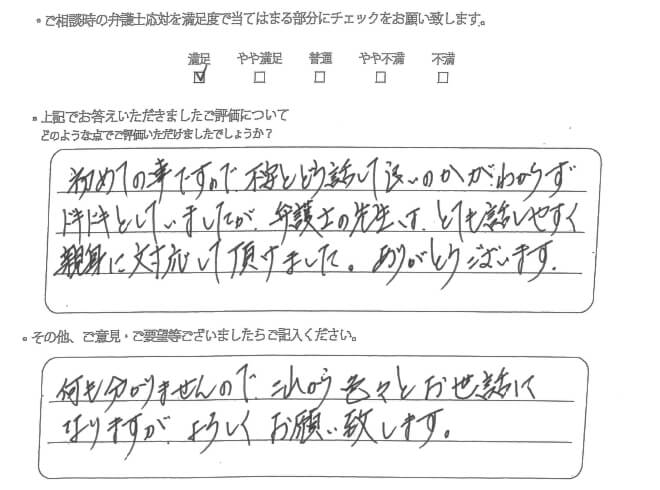 ・ご相談時の弁護士応対を満足度で当てはまる部分にチェックをお願い致します。
満足 やや満足 普通 やや不満 不満
・上記でお答えいただきましたご評価について
どのような点でご評価いただけましたでしょうか？
初めての事ですので 不安とどう話して良いのかがわからず
ドキドキとしていましたが、弁護士の先生は、とても話しやすく
親身に対応して頂けました。ありがとうございます.
・その他、ご意見・ご要望等ございましたらご記入ください。
何も分かりませんので、これから色々とお世話に
なりますが、よろしくお願い致します。